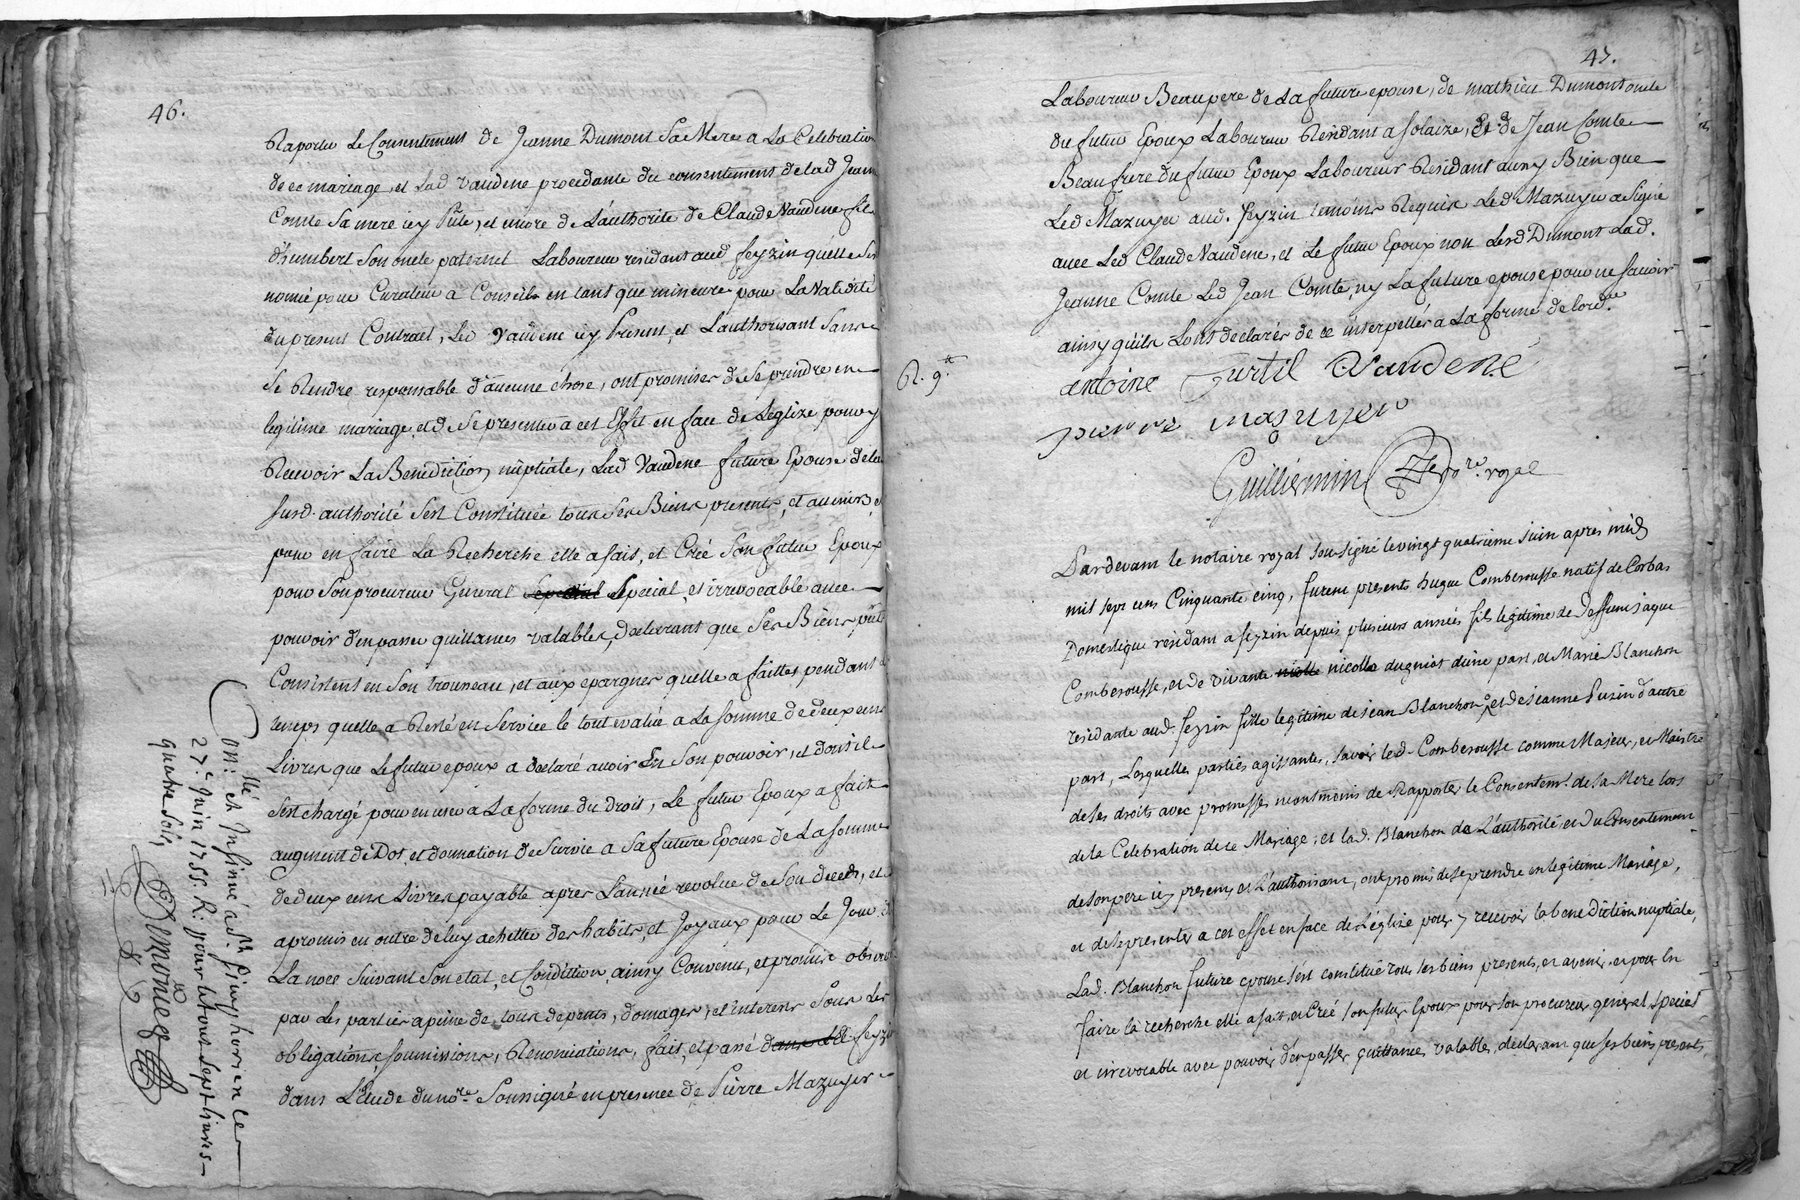 46.
Raporter le Consentement de Jeanne Dumont Sa Mere a La Celebration
de ce mariage, et Lad Vaudene procedante du consentement de lad Jeanne
Comte Sa mere icy pnte, et encore de L'authorité de Claude Vaudene fils
d'humbert Son oncle paternel Laboureur residant aud feyzin qu'elle s'est
nomé pour Curateur a Conseils en tant que mineure pour La Validité
du present Contract, Led Vaudene icy Present, et L'authorisant Sans
Se Rendre responsable d'aucune chose, ont promises de Se prendre en
legitime mariage, et de Se presenter a cet Effet en face de L'eglize pour y
Recevoir La Benediction nuptiale, Lad Vaudene future Epouse de la
susd. authorité S'est Constituée tous Ses Biens presents, et avenirs, et
pour en faire La Recherche elle a fait, et Créé Son futur Epoux
pour Son procureur General Special, et irrevocable avec
pouvoir d'en passer quittances valables, declarant que Ses Biens pnts
Consistent en Son trousseau, et aux epargnes quelle a faittes pendant le
temps quelle a Resté en Service le tout evalué a La Somme de deux cens
Livres que Le futur epoux a declaré avoir En Son pouvoir, et dont il
S'est chargé pour en user a La forme du Droit, Le futur Epoux a fait
augment de Dot et donnation de Survie a Sa future Epouse de La Somme
de deux cens Livres payable apres L'année revolue de Son decedz, et
a promis en outre de luy achetter des habits, et Joyaux pour Le Jour de
La noce Suivant Son etat, et Condition, ainsy Convenu, et promis observer
par Les parties a peine de tous depents, domages, et interets Sous Les
obligations, soumissions, Renonciations, fait, et passé feyzin
dans L'etude du nore. Soussigné en presence de Pierre Mazuyer
Conllé et Insinué a St. Simphorien le
27e. Juin 1755. R. pour le tous Sept livres
quatre sols
47.
Laboureur Beaupere de La future epouse, de mathieu Dumont oncle
du futur Epoux Laboureur Residant a Solaize, Et de Jean Comte
Beaufrere du futur Epoux Laboureur Residant aussy Bien que
Led Mazuyer aud. feyzin temoins Requis Led Mazuyer a Signé
avec Led Claude Vaudene, et Le futur Epoux non Lesd Dumont Lad.
Jeanne Comte Led Jean Comte, ny La future epouse pour ne Scavoir
ainsy qu'ils L'ont declarés de ce interpellés a La forme de lordce
R. 9tt
antoine Curtil Vaudené
pierre masuyer
Guilliermin nore. royal
Pardevant le notaire royal sousigné le vingt quatrieme Juin apres midy
mil sept cens Cinquante cinq, furent presents hugue Comberousse natif de Corbas
Domestique residant a feyzin depuis plusieurs années fils legitime de deffunt jaque
Comberousse, et de vivante nicolle dugniot d'une part, et Marie Blanchon
residante aud. feyzin fille legitime de jean Blanchon, et de jeanne Puzin d'autre
part, Lesquelles parties agissantes, savoir led. Comberousse comme Majeur, et Maistre
de ses droits avec promesse neantmoins de Rapporter le Consentemt. de sa Mere lors
de la Celebration de ce Mariage, et lad. Blanchon de L'authorité, et du Consentement
de son pere icy present, et L'authorisant, ont promis de se prendre en legitime Mariage,
et de se presenter a cet effet en face de L'église pour y recevoir la benediction nuptiale,
Lad. Blanchon future epouse s'est constituée tous ses biens presents, et avenir, et pour En
faire la recherche elle a fait, et Créé son futur Epoux pour son procureur general, special
et irrevocable avec pouvoir d'en passer quittances valables, declarant que ses biens presents,